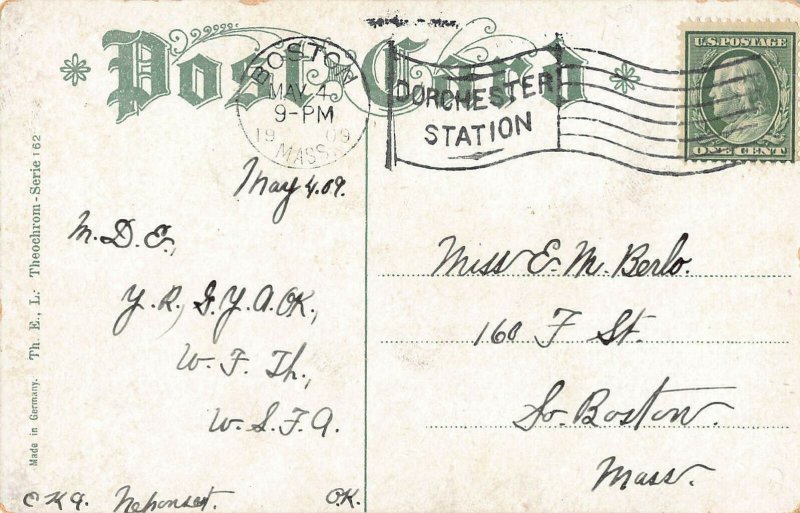 Post Card
BOSTON
MAY 4
9-PM
1909
MASS.
DORCHESTER
STATION
U.S. POSTAGE
ONE CENT
May 4.09.
M. D. E.,
Y. R., G. Y. A. OK.,
W. F. Th.,
W. S. F. A.
Neponset.
O.K.
Miss E. M. Berlo.
160 F St.
So. Boston.
Mass.
Made in Germany. Th. E., L.: Theochrom-Serie 162